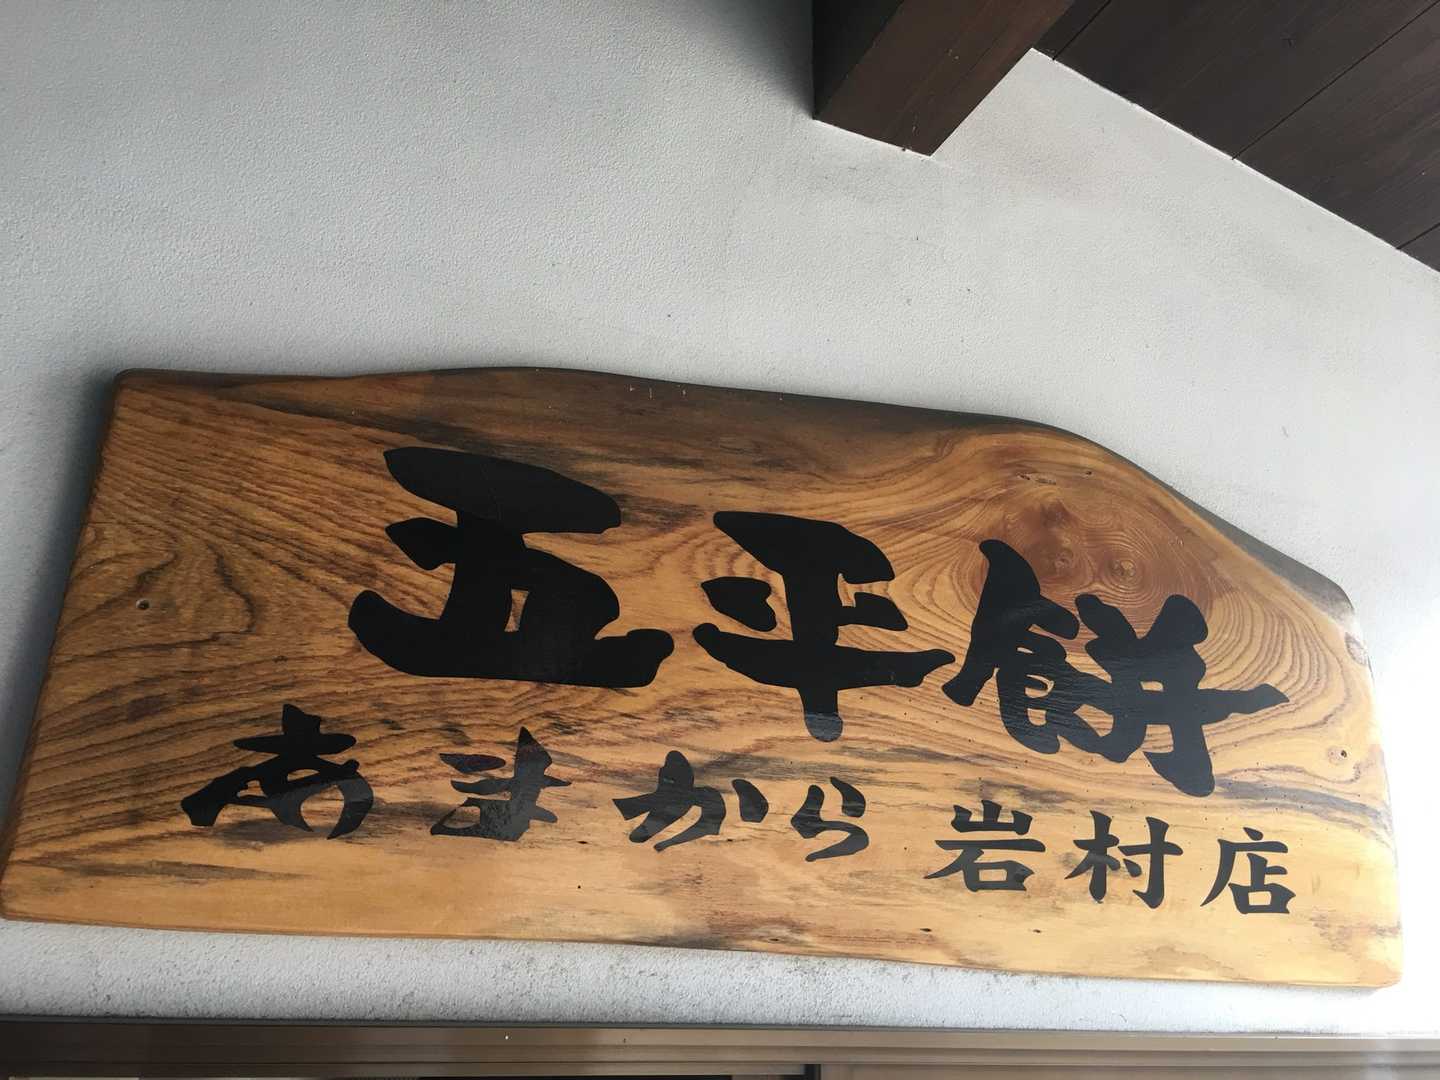 五平餅
あまから 岩村店